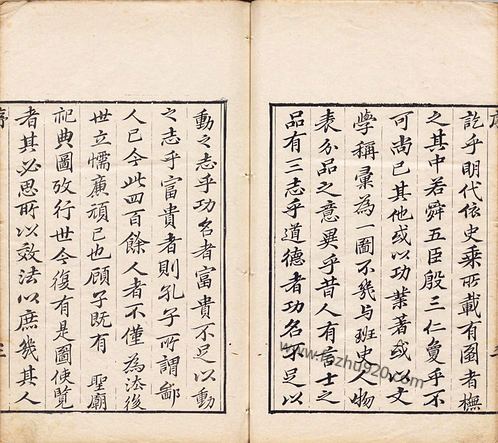 訖乎明代依史乗所載有圖者橅
之其中若舜五臣殷三仁敻乎不
可尚已其他或以功業著或以文
學稱彙為一圖不幾与班史人物
表分品之意異乎昔人有言士之
品有三志乎道德者功名不足以
動之志乎功名者富貴不足以動
之志乎富貴者則孔子所謂鄙
人已今此四百餘人者不僅為後
世立懦廉頑已也顧子既有 聖廟
祀典圖攷行世今復有是圖使覧
者其必思所以效法以庶幾其人
序
www.kongzhu920.com